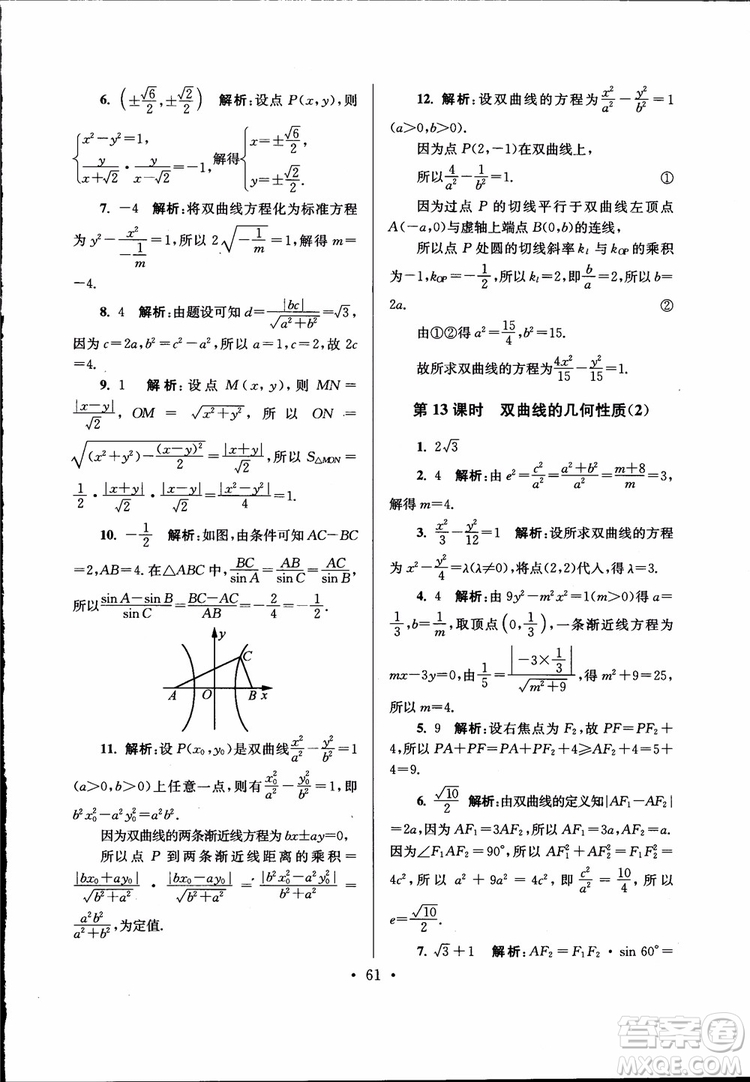 6. (±√6/2, ±√6/2)　解析:设点 P(x,y),则
{x²−y²=1, y/(x+√2)·y/(x−√2)=−1,解得{x=±√6/2, y=±√6/2.
7. −4　解析:将双曲线方程化为标准方程
为 y²−x²/(−1/m)=1,所以 2√(−1/m)=1,解得 m=
−4.
8. 4　解析:由题设可知 d=|bc|/√(a²+b²)=√3,
因为 c=2a,b²=c²−a²,所以 a=1,故 2c=
4.
9. 1　解析:设点 M(x,y),则 MN=
|x−y|/√2, OM=√(x²+y²),所以 ON=
√((x²+y²)−(x−y)²/2)=|x+y|/√2,所以 S△MON=
1/2·|x+y|/√2·|x−y|/√2=|x²−y²|/4=1.
10. −1/2　解析:如图,由条件可知 AC−BC
=2,AB=4. 在△ABC中,BC/sin A=AB/sin C=AC/sin B,
所以(sin A−sin B)/sin C=(BC−AC)/AB=−2/4=−1/2.
y
C
A O B x
11. 解析:设 P(x₀,y₀)是双曲线x²/a²−y²/b²=1
(a>0,b>0)上任意一点,则有x₀²/a²−y₀²/b²=1,即
b²x₀²−a²y₀²=a²b².
因为双曲线的两条渐近线方程为 bx±ay=0,
所以点 P 到两条渐近线距离的乘积=
|bx₀+ay₀|/√(b²+a²)·|bx₀−ay₀|/√(b²+a²)=|b²x₀²−a²y₀²|/(a²+b²)=
a²b²/(a²+b²),为定值.
12. 解析:设双曲线的方程为x²/a²−y²/b²=1
(a>0,b>0).
因为点 P(2,−1)在双曲线上,
所以4/a²−1/b²=1.　①
因为过点 P 的切线平行于双曲线左顶点
A(−a,0)与虚轴上端点 B(0,b)的连线,
所以点 P 处圆的切线斜率 kₗ 与 kOP的乘积
为−1,kOP=−1/2,所以 kₗ=2=b/a,所以 b=
2a.　②
由①②得 a²=15/4,b²=15.
故所求双曲线的方程为4x²/15−y²/15=1.
第 13 课时　双曲线的几何性质(2)
1. 2√3
2. 4　解析:由 e²=c²/a²=(a²+b²)/a²=(m+8)/m=3,
解得 m=4.
3. x²/3−y²/12=1　解析:设所求双曲线的方程
为x²−y²/4=λ(λ≠0),将点(2,2)代人,得 λ=3.
4. 4　解析:由 9y²−m²x²=1(m>0)得 a=
1/3,b=1/m,取顶点(0,1/3),一条渐近线方程为
mx−3y=0,由1/5=|−3×1/3|/√(m²+9),得 m²+9=25,
所以 m=4.
5. 9　解析:设右焦点为 F₂,故 PF=PF₂+
4,所以 PA+PF=PA+PF₂+4⩾AF₂+4=5+
4=9.
6. √10/2　解析:由双曲线的定义知|AF₁−AF₂|
=2a,又因为 AF₁=3AF₂,故 AF₁=3a,AF₂=a.
因为∠F₁AF₂=90°,所以 AF₁²+AF₂²=F₁F₂²=
4c²,所以 a²+9a²=4c²,即c²/a²=5/2,所以
e=√10/2.
7. √3+1　解析:AF₂=F₁F₂·sin 60°=
· 61 ·
答案圈
MXQE.COM